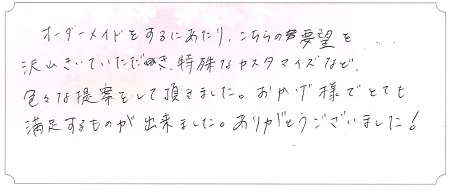 オーダーメイドをするにあたり、こちらの要望を...
沢山きいていただき、特殊なカスタマイズなど、
色々な提案をして頂きました。おかげ様でとても
満足するものが出来ました。ありがとうございました!